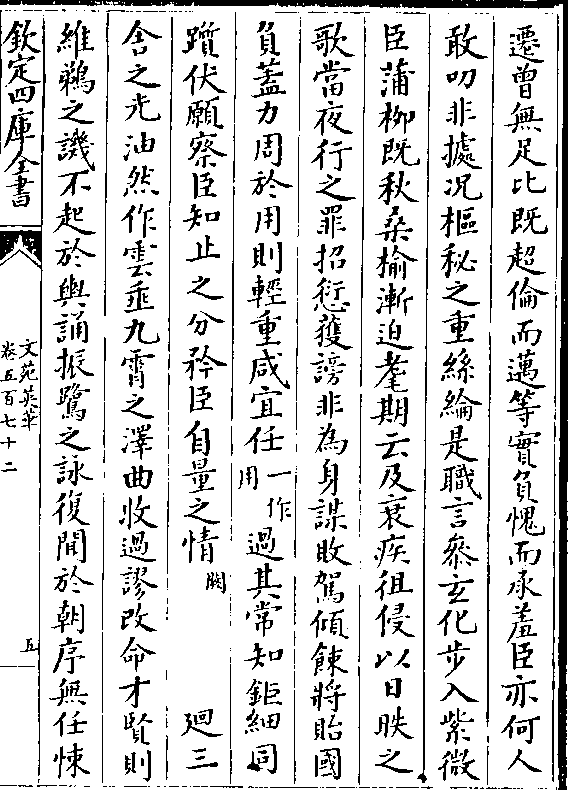 遷曾無足比既超倫而邁等實負愧而承羞臣亦何人
敢叨非據況樞秘之重絲綸是職言叅玄化步入紫微
臣蒲柳既秋桑榆漸迫耄期云及衰疾徂侵以日昳之
歌當夜行之罪招愆獲謗非為身謀敗駕傾餗將貽國
負蓋力周於用則輕重咸宜任一作用過其常知鉅細同
躓伏願察臣知止之分矜臣自量之情闕廻三
舍之光油然作雲垂九霄之澤曲收過謬改命才賢則
維鵜之譏不起於輿誦振鷺之詠復聞於朝序無任悚
欽定四庫全書
文苑英華
卷五百七十二
五